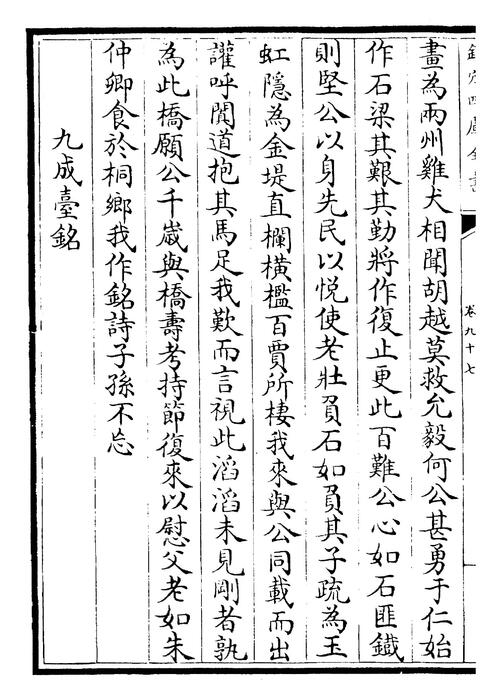 欽定四庫全書
卷九十七
畫為兩州雞犬相聞胡越莫救允毅何公甚勇于仁始
作石梁其艱其勤將作復止更此百難公心如石匪鐵
則堅公以身先民以悦使老壯負石如負其子疏為玉
虹隱為金堤直欄横檻百賈所棲我來與公同載而出
讙呼闐道抱其馬足我歎而言視此滔滔未見剛者孰
為此橋願公千嵗與橋壽考持節復來以慰父老如朱
仲卿食於桐鄉我作銘詩子孫不忘
九成臺銘